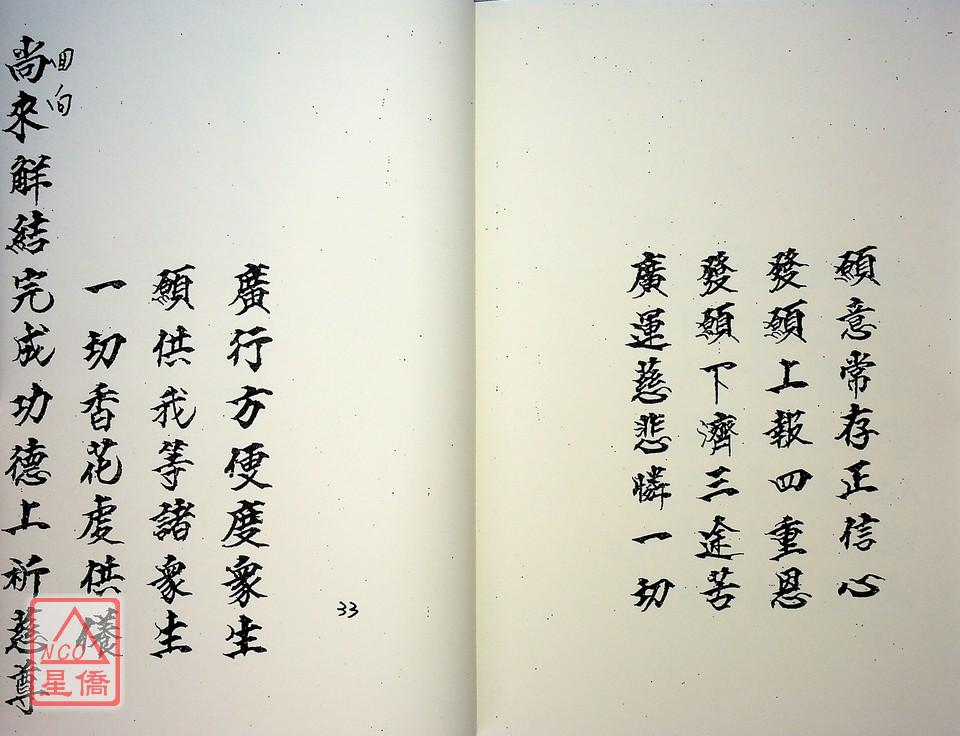 願意常存正信心
發願上報四重恩
發願下濟三途苦
廣運慈悲憐一切
33
廣行方便度衆生
願供我等諸衆生
一切香花虔供養
回向
尚來解結完成功德上祈慈尊
NCO
星僑